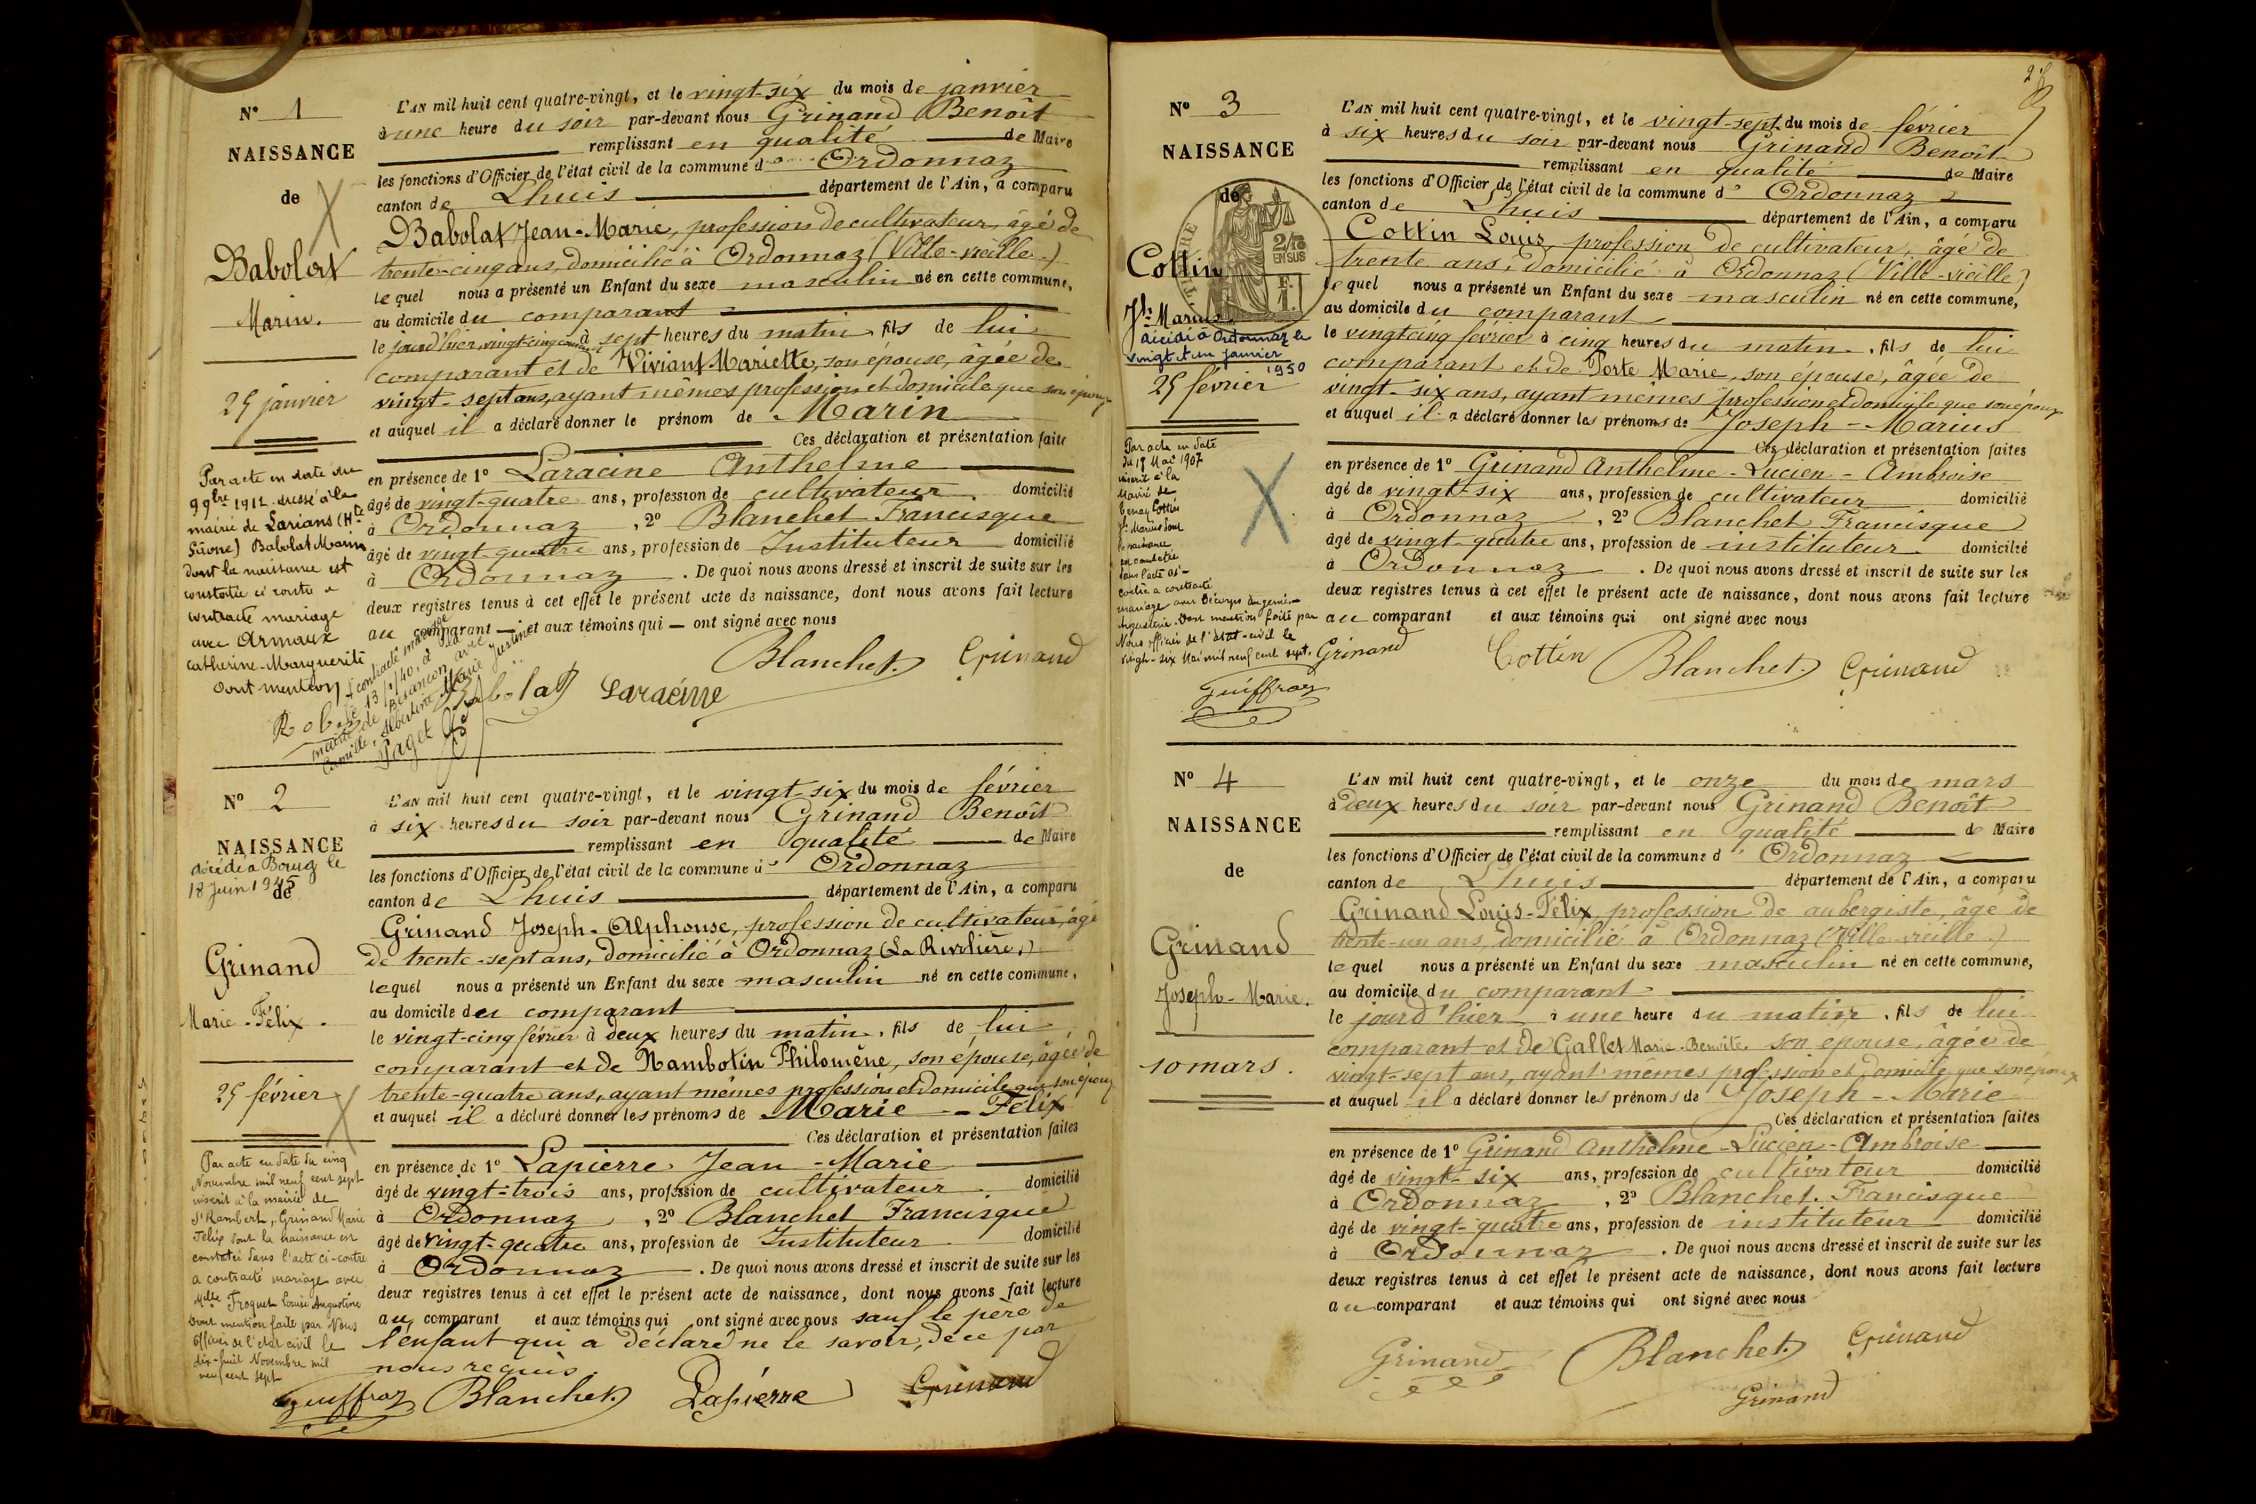 N° 1
NAISSANCE
de
Babolat
Marin.
25 janvier
Par acte en date du
9 9bre 1912 dressé à la
mairie de Larians (Hte
Saône) Babolat Marin
dont la naissance est
constatée ci contre a
contracté mariage
avec Armaux
Catherine-Marguerite
dont mention
L'AN mil huit cent quatre-vingt, et le vingt-six du mois de janvier
à une heure du soir par-devant nous Grinand Benoît
remplissant en qualité de Maire
les fonctions d'Officier de l'état civil de la commune d' Ordonnaz
canton de Lhuis département de l'Ain, a comparu
Babolat Jean-Marie, profession de cultivateur, âgé de
trente-cinq ans, domicilié à Ordonnaz (Ville-vieille)
lequel nous a présenté un Enfant du sexe masculin né en cette commune,
au domicile du comparant
le jour d'hier, vingt-cinq courant à sept heures du matin, fils de lui
comparant et de Viviant Mariette, son épouse, âgée de
vingt-sept ans, ayant mêmes profession et domicile que son époux
et auquel il a déclaré donner le prénom de Marin
Ces déclaration et présentation faite
en présence de 1° Laracine Anthelme
âgé de vingt-quatre ans, profession de cultivateur, domicilié
à Ordonnaz, 2° Blanchet Francisque
âgé de vingt-quatre ans, profession de Instituteur domicilié
à Ordonnaz. De quoi nous avons dressé et inscrit de suite sur les
deux registres tenus à cet effet le présent acte de naissance, dont nous avons fait lecture
au comparant et aux témoins qui ont signé avec nous
Blanchet Grinand
Babolat Laracine
contracté mariage
le 13/1/40, à la
mairie de Besançon avec
Camille, Albertine Marie Justine
Paget
N° 2
NAISSANCE
décédé à Bourg le
18 Juin 1945
de
Grinand
Marie-Félix.
25 février
Par acte en date du cinq
Novembre mil neuf cent sept
inscrit à la mairie de
St Rambert, Grinand Marie
Félix dont la naissance est
constatée dans l'acte ci-contre
a contracté mariage avec
Melle Froquet Louise Augustine
Dont mention faite par Nous
Officier de l'état civil le
dix-huit Novembre mil
neuf cent sept
L'AN mil huit cent quatre-vingt, et le vingt-six du mois de février
à six heures du soir par-devant nous Grinand Benoît
remplissant en qualité de Maire
les fonctions d'Officier de l'état civil de la commune d' Ordonnaz
canton de Lhuis département de l'Ain, a comparu
Grinand Joseph-Alphonse, profession de cultivateur, âgé
de trente-sept ans, domicilié à Ordonnaz (La Rivolière,)
lequel nous a présenté un Enfant du sexe masculin né en cette commune,
au domicile du comparant
le vingt-cinq février à deux heures du matin, fils de lui
comparant et de Nambotin Philomène, son épouse, âgée de
trente-quatre ans, ayant mêmes profession et domicile que son époux
et auquel il a déclaré donner les prénoms de Marie-Félix
Ces déclaration et présentation faites
en présence de 1° Lapierre Jean-Marie
âgé de vingt-trois ans, profession de cultivateur, domicilié
à Ordonnaz, 2° Blanchet Francisque
âgé de vingt-quatre ans, profession de Instituteur domicilié
à Ordonnaz. De quoi nous avons dressé et inscrit de suite sur les
deux registres tenus à cet effet le présent acte de naissance, dont nous avons fait lecture
au comparant et aux témoins qui ont signé avec nous sauf le père de
l'enfant qui a déclaré ne le savoir, de ce par
nous requis
Guiffray Blanchet Lapierre Grinand
N° 3
NAISSANCE
de
2/10
EN SUS
Cottin
Jh-Marius
décédé à Ordonnaz le
vingt et un janvier
1950
25 février
Par acte en date
du 19 Mai 1907
inscrit à la
Mairie de
Tenay Cottin
Jh Marius dont
la naissance
est constatée
dans l'acte ci-
contre a contracté
mariage avec
Dont mention faite par
Nous officier de l'état-civil le
vingt-six Mai mil neuf cent sept.
Guiffray
L'AN mil huit cent quatre-vingt, et le vingt-sept du mois de février
à six heures du soir par-devant nous Grinand Benoît
remplissant en qualité de Maire
les fonctions d'Officier de l'état civil de la commune d' Ordonnaz
canton de Lhuis département de l'Ain, a comparu
Cottin Louis, profession de cultivateur, âgé de
trente ans, domicilié à Ordonnaz (Ville-vieille)
lequel nous a présenté un Enfant du sexe masculin né en cette commune,
au domicile du comparant
le vingt cinq février à cinq heures du matin, fils de lui
comparant et de Porte Marie, son épouse, âgée de
vingt-six ans, ayant mêmes profession et domicile que son époux
et auquel il a déclaré donner les prénoms de Joseph-Marius
Ces déclaration et présentation faites
en présence de 1° Grinand Anthelme-Lucien-Ambroise
âgé de vingt-six ans, profession de cultivateur domicilié
à Ordonnaz, 2° Blanchet Francisque
âgé de vingt-quatre ans, profession de instituteur domicilié
à Ordonnaz. De quoi nous avons dressé et inscrit de suite sur les
deux registres tenus à cet effet le présent acte de naissance, dont nous avons fait lecture
au comparant et aux témoins qui ont signé avec nous
Grinand Cottin Blanchet Grinand
N° 4
NAISSANCE
de
Grinand
Joseph-Marie.
10 mars.
L'AN mil huit cent quatre-vingt, et le onze du mois de mars
à deux heures du soir par-devant nous Grinand Benoît
remplissant en qualité de Maire
les fonctions d'Officier de l'état civil de la commune d' Ordonnaz
canton de Lhuis département de l'Ain, a comparu
Grinand Louis-Félix, profession de aubergiste, âgé de
trente-un ans, domicilié à Ordonnaz (Ville-vieille)
lequel nous a présenté un Enfant du sexe masculin né en cette commune,
au domicile du comparant
le jour d'hier à une heure du matin, fils de lui
comparant et de Gallet Marie-Benoîte, son épouse, âgée de
vingt-sept ans, ayant mêmes profession et domicile que son époux
et auquel il a déclaré donner les prénoms de Joseph-Marie
Ces déclaration et présentation faites
en présence de 1° Grinand Anthelme-Lucien-Ambroise
âgé de vingt-six ans, profession de cultivateur domicilié
à Ordonnaz, 2° Blanchet Francisque
âgé de vingt-quatre ans, profession de instituteur domicilié
à Ordonnaz. De quoi nous avons dressé et inscrit de suite sur les
deux registres tenus à cet effet le présent acte de naissance, dont nous avons fait lecture
au comparant et aux témoins qui ont signé avec nous
Grinand Blanchet Grinand
Grinand